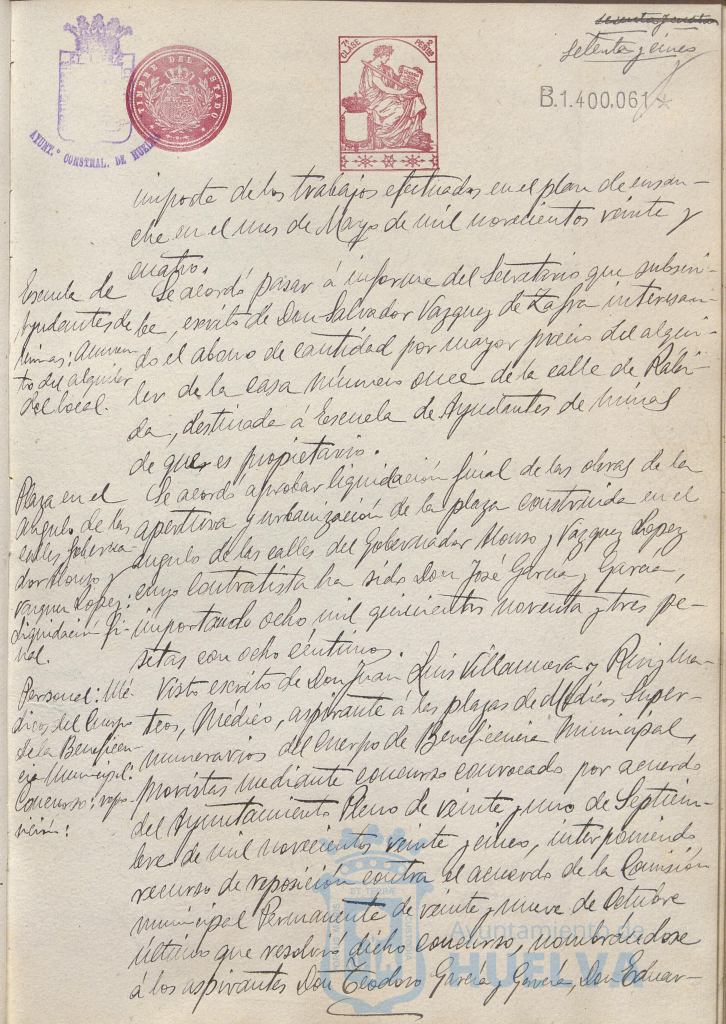 sesenta y cuatro
setenta y cinco
AYUNT.º CONSTNAL. DE HUELVA
TIMBRE DEL ESTADO
7ª CLASE
2 PESTAS
B.1.400.061 *
importe de los trabajos efectuados en el plan de ensan-
che en el mes de Mayo de mil novecientos veinte y
cuatro.
Escuela de
Ayudantes de
minas: Aumen-
to del alquiler
del local.
Se acordó pasar á informe del Secretario que subscri-
be, escrito de Don Salvador Vazquez de Zafra interesan-
do el abono de cantidad por mayor precio del alqui-
ler de la casa número once de la calle de Rabi-
da, destinada á Escuela de Ayudantes de minas
de que es propietario.
Plaza en el
angulo de las
calles Goberna-
dor Alonso y
Vazquez Lopez:
Liquidación fi-
nal.
Se acordó aprobar liquidación final de las obras de la
apertura y urbanización de la plaza construida en el
angulo de las calles del Gobernador Alonso y Vazquez Lopez
cuyo contratista ha sido Don José García y García,
importando ocho mil quinientas noventa y tres pe-
setas con ocho céntimos.
Personal: Mé-
dicos del Cuerpo
de la Beneficen-
cia Municipal:
Concurso: repo-
sición:
Visto escrito de Don Juan Luis Villanueva y Ruiz Ma-
teos, Médico, aspirante á las plazas de Médicos Super-
numerarios del Cuerpo de Beneficencia Municipal,
provistas mediante concurso convocado por acuerdo
del Ayuntamiento Pleno de veinte y uno de Septiem-
bre de mil novecientos veinte y cinco, interponiendo
recurso de reposición contra el acuerdo de la Comisión
municipal Permanente de veinte y nueve de Octubre
último que resolvió dicho concurso, nombrándose
á los aspirantes Don Teodoro García y García, Don Eduar-
Ayuntamiento de
HUELVA